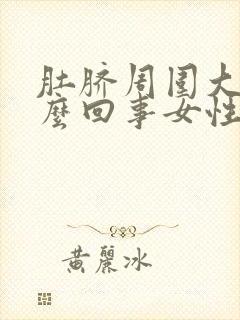 肚脐周围大
麼回事女性
黄麗冰